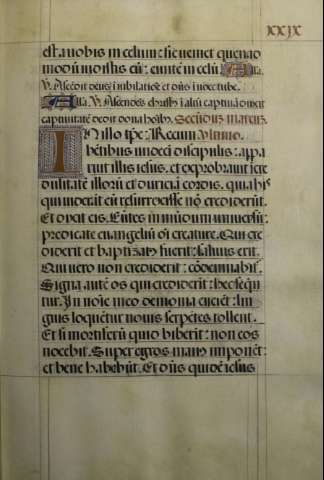 xxix
est a nobis in celum: sic veniet quemad
modũ vidistis eũ: euntẽ in celũ Alla.
V. Ascendit deus in iubilatiõe et dñs in voce tube.
Alla. V. Ascẽdẽs christus ĩ altũ captiuã duxit
captiuitatẽ dedit dona hoĩbꝰ. Secũdũs marcũs.
In illo tp̃e: Recum bẽtibus
bẽtibus undeci discipulis: appa
ruit illis iesus. et exprobrauit ĩcre
dulitatẽ illorũ et duriciã cordis. quia hijs
qui viderãt eũ resurrexisse nõ crediderũt.
Et dixit eis. Eũtes in mũdum uniuersũ:
predicate euangeliũ oĩ creature. Qui cre
diderit et baptizatꝰ fuerit: saluus erit.
Qui vero non crediderit: cõdemnabiť.
Signa autẽ eos qui crediderĩt: hec sequẽ
tur. In noĩe meo demonia eijciẽt: lin
guis loquẽtur nouis serpẽtes tollent.
Et si mortiferũ quid biberĩt: non eos
nocebit. Super egros manꝰ imponẽt:
et bene habebũt. Et dñs quidẽ iesus